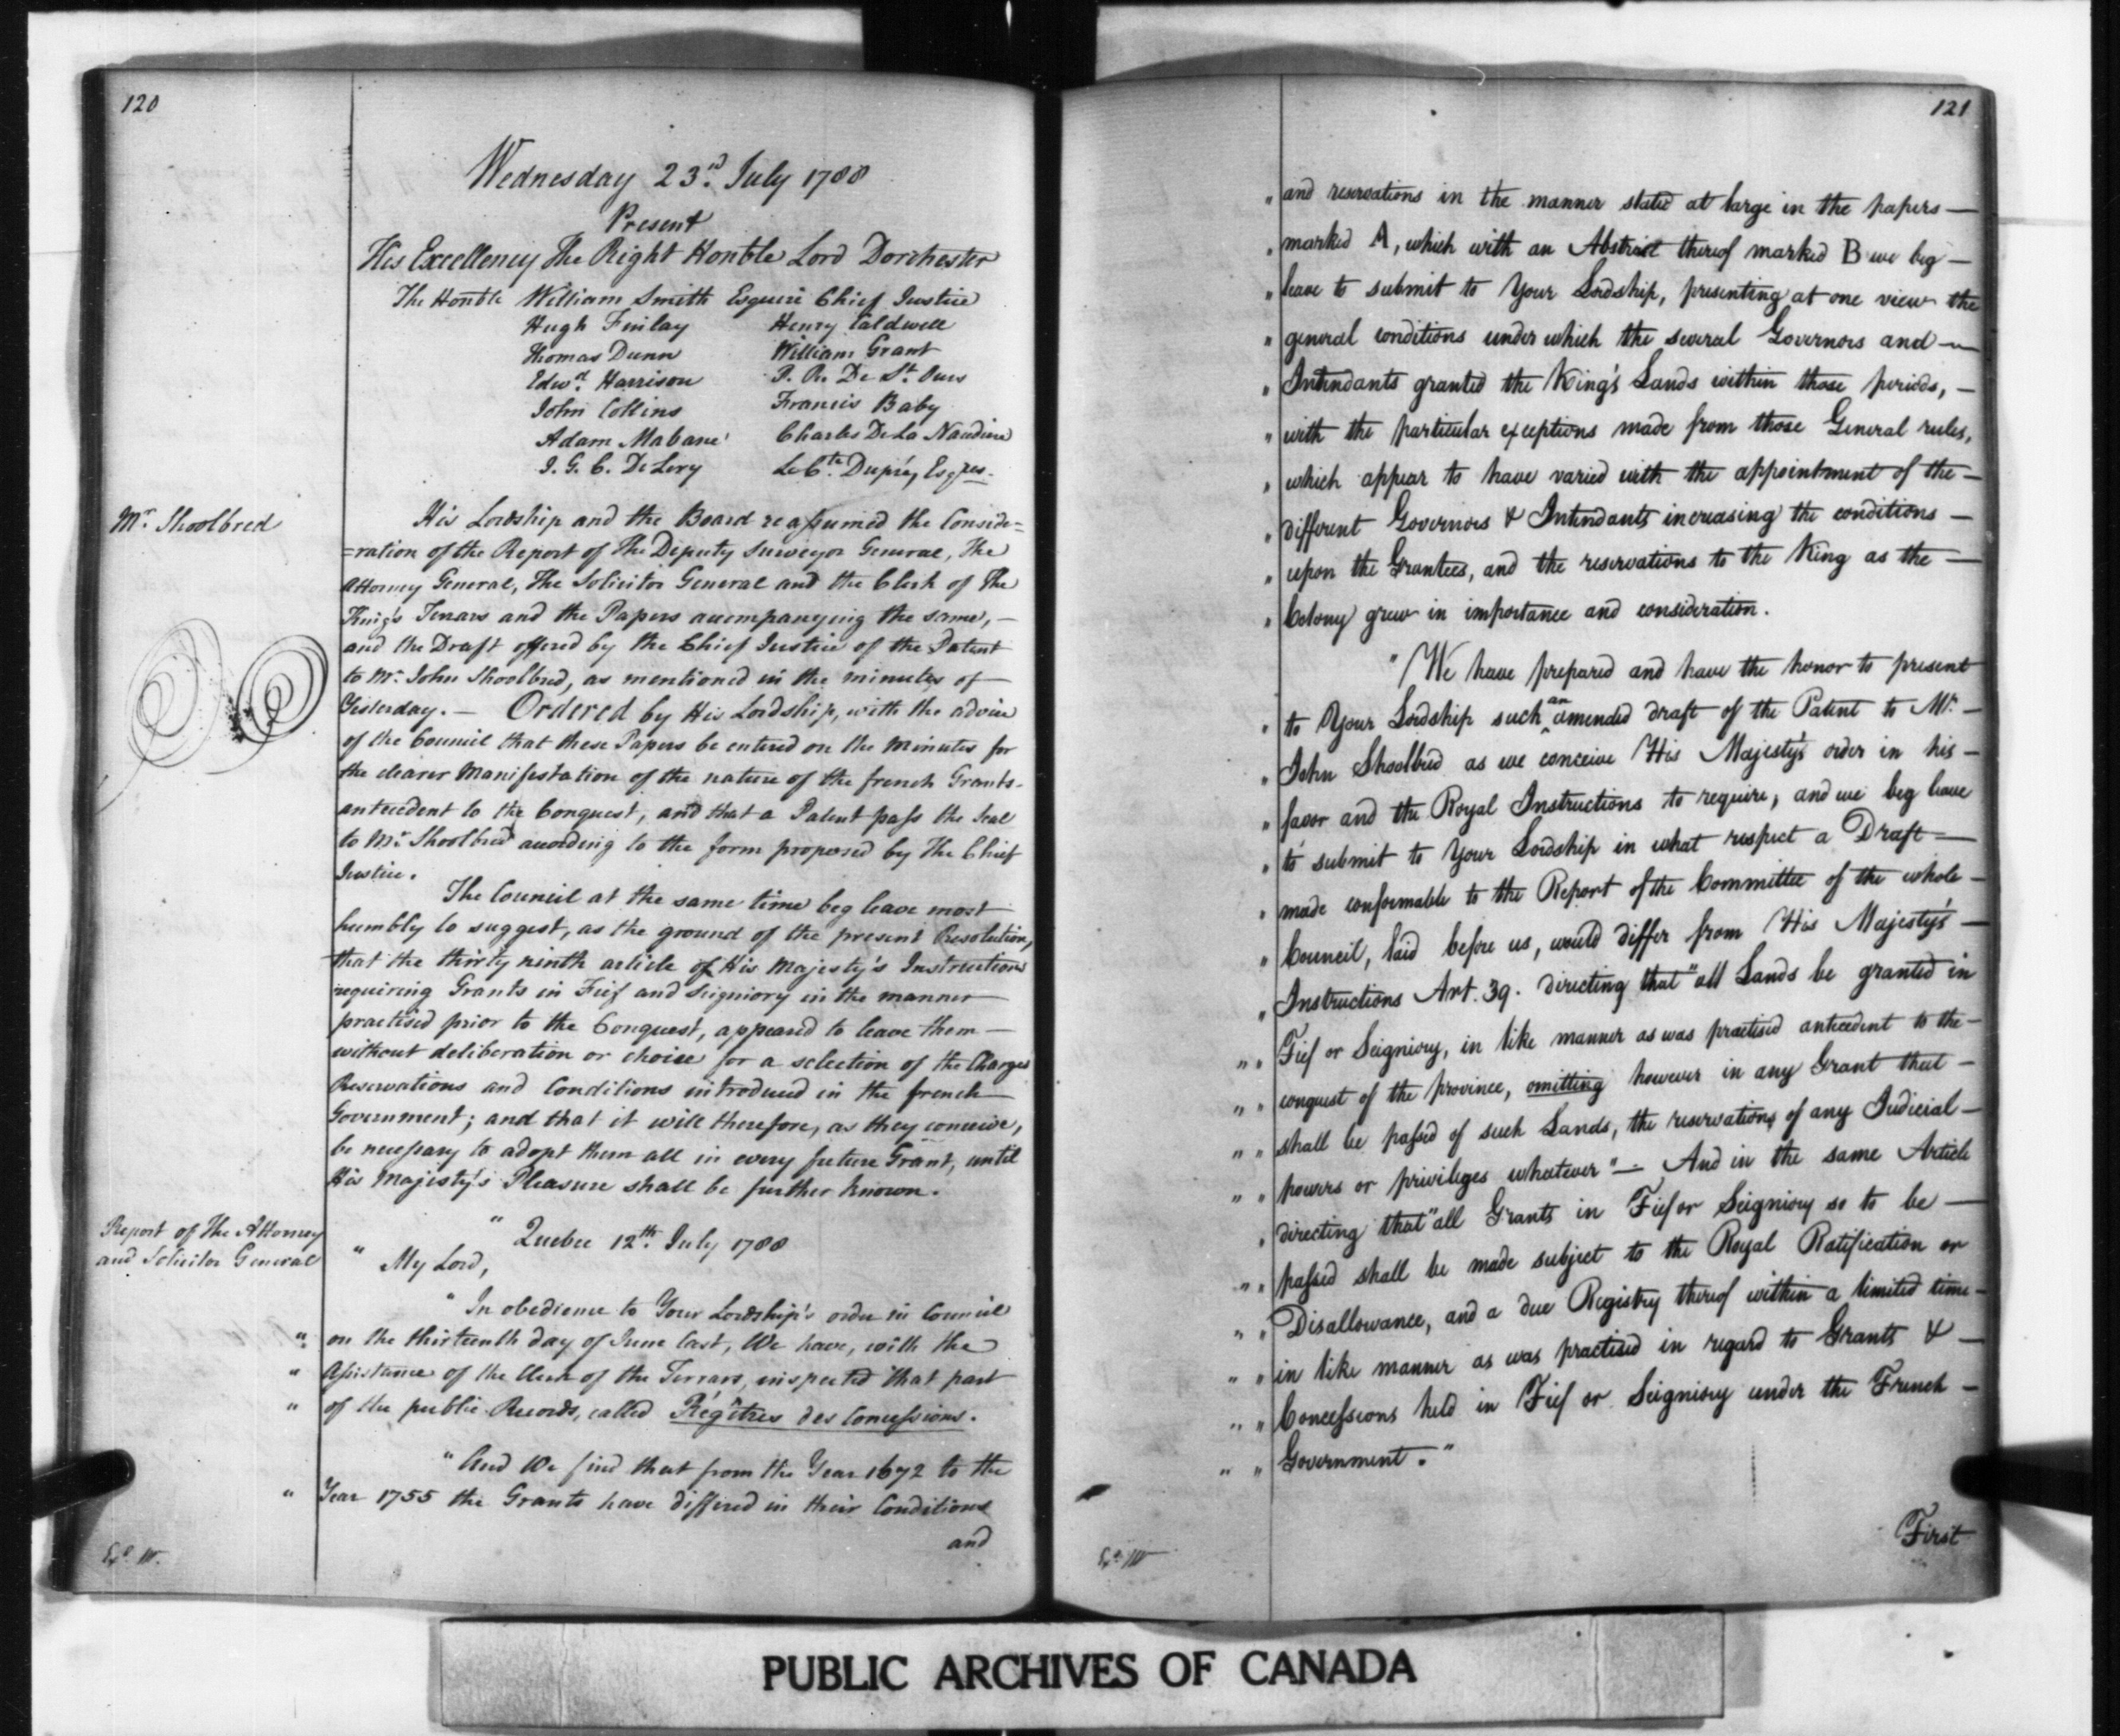 120
Wednesday 23.rd July 1788
Present
His Excellency The Right Honble Lord Dorchester
The Honble William Smith Esquire Chief Justice
Hugh Finlay Henry Caldwell
Thomas Dunn William Grant
Edwd. Harrison P. R. De St. Ours
John Collins Francis Baby
Adam Mabane Charles De La Naudiere
J. G. C. De Lery Le Cte. Dupré, Esqres.
Mr. Shoolbred
His Lordship and the Board reassumed the Conside=
=ration of the Report of The Deputy Surveyor General, The
Attorney General, The Solicitor General and the Clerk of The
King's Terrars and the Papers accompanying the same, —
and the Draft offered by the Chief Justice of the Patent
to Mr. John Shoolbred, as mentioned in the minutes of —
Yesterday. — Ordered by His Lordship, with the advice
of the Council that these Papers be entered on the Minutes for
the clearer Manifestation of the nature of the french Grants
antecedent to the Conquest, and that a Patent pass the Seal
to Mr. Shoolbred according to the form proposed by The Chief
Justice.
The Council at the same time beg leave most
humbly to suggest, as the ground of the present Resolution,
that the thirty ninth article of His Majesty's Instructions
requiring Grants in Fief and Seigniory in the manner —
practised prior to the Conquest, appeared to leave them —
without deliberation or choice for a selection of the Charges
Reservations and Conditions introduced in the french —
Government; and that it will therefore, as they conceive,
be necessary to adopt them all in every future Grant, until
His Majesty's Pleasure shall be further known.
Report of The Attorney
and Solicitor General
" Quebec 12th. July 1788
" My Lord,
" In obedience to Your Lordship's order in Council
" on the thirteenth day of June last, We have, with the
" Assistance of the Clerk of the Terrars, inspected that part
" of the public Records, called Régîtres des Concessions.
" And We find that from the Year 1672 to the
" Year 1755 the Grants have differed in their Conditions
and
121
" and reservations in the manner stated at large in the papers —
" marked A, which with an Abstract thereof marked B we beg —
" leave to submit to Your Lordship, presenting at one view the
" general conditions under which the several Governors and —
" Intendants granted the King's Lands within those periods, —
" with the particular exceptions made from those General rules,
" which appear to have varied with the appointment of the —
" different Governors & Intendants increasing the conditions —
" upon the Grantees, and the reservations to the King as the —
" Colony grew in importance and consideration.
" We have prepared and have the honor to present
" to Your Lordship such an amended draft of the Patent to Mr. —
" John Shoolbred as we conceive His Majesty's order in his —
" favor and the Royal Instructions to require, and we beg leave
" to submit to Your Lordship in what respect a Draft —
" made conformable to the Report of the Committee of the whole —
" Council, laid before us, would differ from His Majesty's —
" Instructions Art. 39. directing that "all Lands be granted in
" " Fief or Seigniory, in like manner as was practised antecedent to the —
" " conquest of the province, omitting however in any Grant that —
" " shall be passed of such Lands, the reservations of any Judicial —
" " powers or privileges whatever" — And in the same Article
" directing that "all Grants in Fief or Seigniory so to be —
" " passed shall be made subject to the Royal Ratification or
" " Disallowance, and a due Registry thereof within a limited time —
" " in like manner as was practised in regard to Grants & —
" " Concessions held in Fief or Seigniory under the French —
" " Government."
First
PUBLIC ARCHIVES OF CANADA